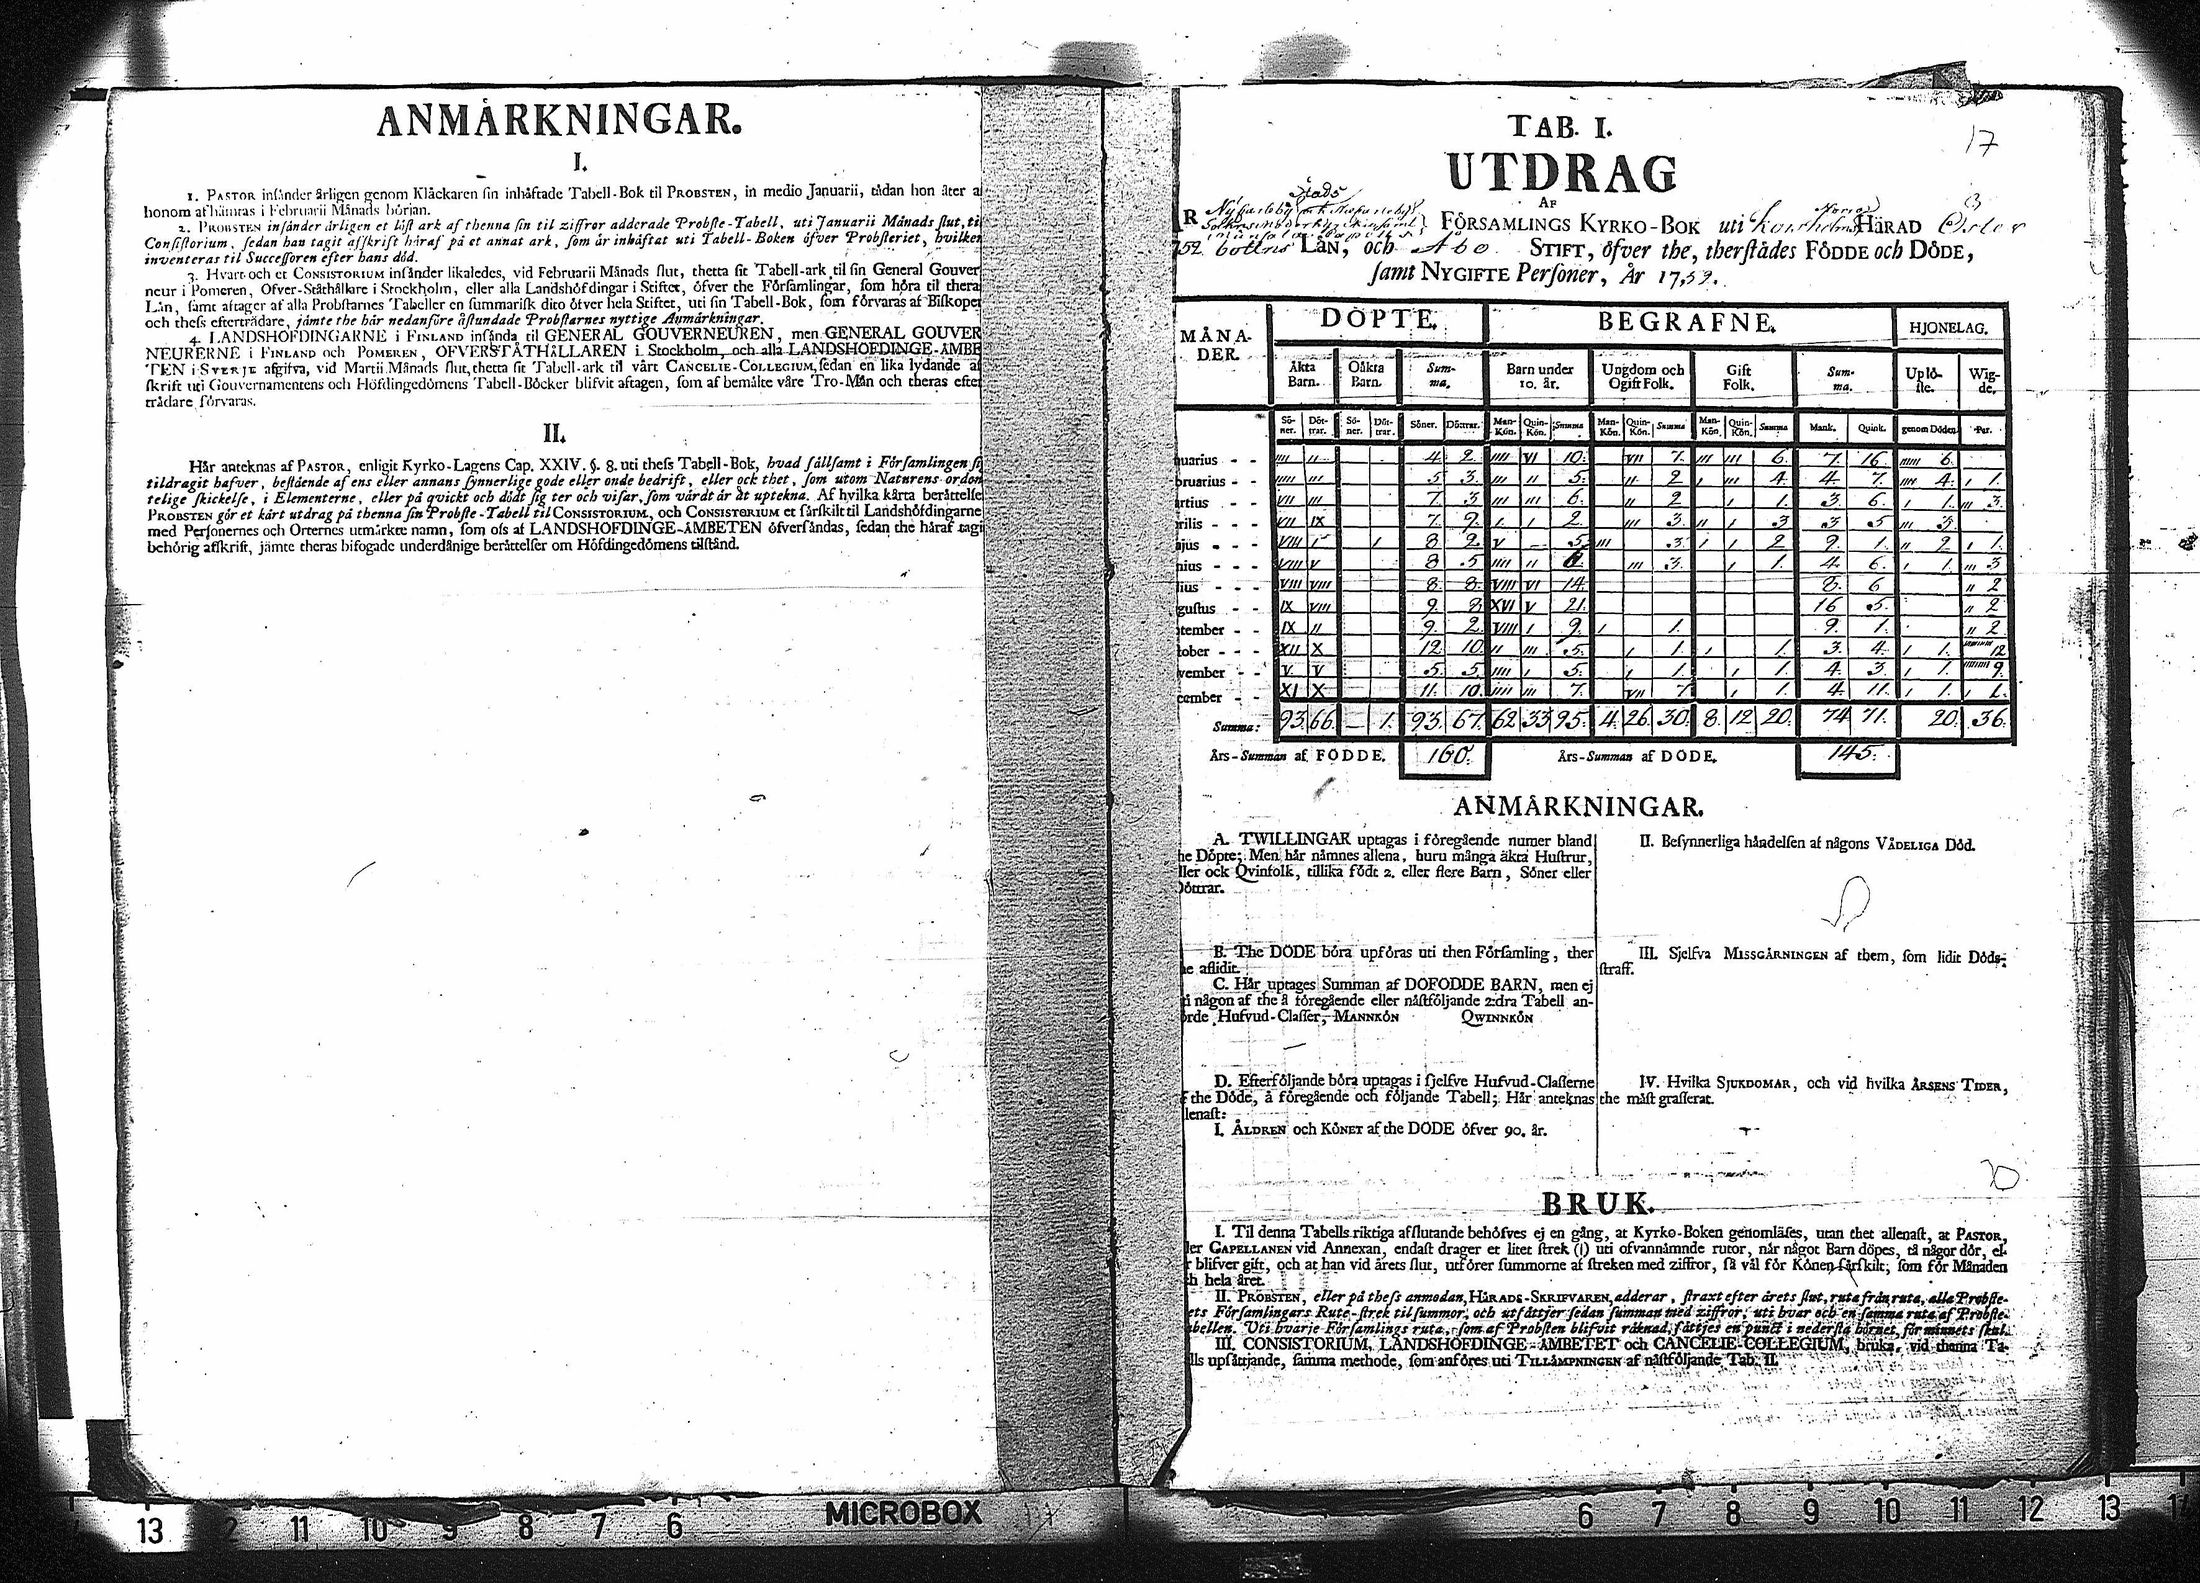 ANMÄRKNINGAR.
I.
1. PASTOR insänder årligen genom Klåckaren sin inhäftade Tabell-Bok til PROBSTEN, in medio Januarii, tådan hon åter a
honom afhämtas i Februarii Månads början.
2. PROBSTEN insänder årligen et löst ark af thenna sin til ziffror adderade Probste-Tabell, uti Januarii Månads slut, til
Consistorium, sedan han tagit afskrift häraf på et annat ark, som är inhäftat uti Tabell-Boken öfver Probsteriet, hvilken
inventeras til Successoren efter hans död.
3. Hvart och et CONSISTORIUM insänder likaledes, vid Februarii Månads slut, thetta sit Tabell-ark til sin General Gouver
neur i Pomeren, Öfver-Ståthållare i Stockholm, eller alla Landshöfdingar i Stiftet, öfver the Församlingar, som höra til thera
Län, samt aftager af alla Probstarnes Tabeller en summarisk dito öfver hela Stiftet, uti sin Tabell-Bok, som förvaras af Biskopen
och thess efterträdare, jämte the här nedanföre åstundade Probstarnes nyttige Anmärkningar.
4. LANDSHÖFDINGARNE i FINLAND insända til GENERAL GOUVERNEUREN, men GENERAL GOUVER
NEURERNE i FINLAND och POMEREN, ÖFVERSTÅTHÅLLAREN i Stockholm, och alla LANDSHÖFDINGE-ÄMBE
TEN i SVERJE afgifva, vid Martii Månads slut, thetta sit Tabell-ark til vårt CANCELIE-COLLEGIUM, sedan en lika lydande af
skrift uti Gouvernamentens och Höfdingedömens Tabell-Böcker blifvit aftagen, som af bemälte våre Tro-Män och theras efter
trädare förvaras.
II.
Här anteknas af PASTOR, enligit Kyrko-Lagens Cap. XXIV. §. 8. uti thess Tabell-Bok, hvad sällsamt i Församlingen si
tildragit hafver, bestående af ens eller annans synnerlige gode eller onde bedrift, eller ock thet, som utom Naturens orden
telige skickelse, i Elementerne, eller på qvickt och dödt sig ter och visar, som värdt är at uptekna. Af hvilka kårta berättelse
PROBSTEN gör et kårt utdrag på thenna sin Probste-Tabell til CONSISTORIUM, och CONSISTORIUM et särskilt til Landshöfdingarne
med Personernes och Orternes utmärkte namn, som oss af LANDSHÖFDINGE-ÄMBETEN öfversändas, sedan the häraf tagi
behörig afskrift, jämte theras bifogade underdånige berättelser om Höfdingedömens tilstånd.
17
TAB. I.
UTDRAG
AF
Stads
R FÖRSAMLINGS KYRKO-BOK uti Korsholms Norra HÄRAD Öster
752. bottns LÄN, och Åbo STIFT, öfver the, therstädes FÖDDE och DÖDE,
samt NYGIFTE Personer, År 1752.
MÅNA-DER. DÖPTE. BEGRAFNE. HJONELAG.
Äkta Barn. Oäkta Barn. Summa. Barn under 10. år. Ungdom och Ogift Folk. Gift Folk. Summa. Uplöste. Wigde.
Söner. Döttrar. Söner. Döttrar. Söner. Döttrar. Man-Kön. Quin-Kön. Summa Man-Kön. Quin-Kön. Summa Man-Kön. Quin-Kön. Summa Mank. Quink. genom Döden. Par.
nuarius - - IIII II 4. 2. IIII VI 10. VII 7. III III 6. 7. 16 6.
bruarius - - IIIII III 5 3. III II 5. II 2 I III 4. 4. 7. IIII 4. I 1.
artius - - VII III 7. 3 III III 6. II 2 I 1. 3 6. I 1. III 3.
rilis - - - VII IX 7. 9. I I 2. III 3. II I 3 3 5 III 3.
ajus - - - VIII I I 8 2. V — 5. III 3. I I 2 9. 1. II 2 I 1.
nius - - - VIII V 8 5. IIII II 6. III 3. I 1. 4. 6. I 1. III 3
lius - - - VIII VIII 8. 8. VIII VI 14. 8. 6 II 2
gustus - - IX VIII 9. 8. XVI V 21. 16 5. II 2
tember - - IX II 9. 2. VIII I 9. I 1. 9. 1. II 2
tober - - - XII X 12. 10. II III 5. I 1. I 1. 3. 4. I 1. 12
vember - - V V 5. 5. IIII I 5. I 1. I 1. 4 3 I 1. 9.
cember - - XI X 11. 10. IIII III 7. VII 7 I 1. 4. 11. I 1. I 1.
Summa: 93. 66. — 1. 93. 67. 62. 33. 95. 4. 26. 30. 8. 12. 20. 74 71. 20. 36.
Års-Summan af FÖDDE. 160. Års-Summan af DÖDE. 145.
ANMÄRKNINGAR.
A. TWILLINGAR uptagas i föregående numer bland
he Döpte; Men här nämnes allena, huru många äkta Hustrur,
ller ock Qvinfolk, tillika födt 2. eller flere Barn, Söner eller
Döttrar.
B. The DÖDE böra upföras uti then Församling, ther
e aflidit.
C. Här uptages Summan af DÖFÖDDE BARN, men ej
i någon af the å föregående eller nästföljande 2:dra Tabell an-
örde Hufvud-Classer, MANNKÖN QWINNKÖN
—
D. Efterföljande böra uptagas i sjelfve Hufvud-Classerne
f the Döde, å föregående och följande Tabell; Här anteknas
lenast:
I. ÅLDREN och KÖNET af the DÖDE öfver 90. år.
II. Besynnerliga händelsen af någons VÅDELIGA Död.
III. Sjelfva MISSGÄRNINGEN af them, som lidit Döds-
straff.
IV. Hvilka SJUKDOMAR, och vid hvilka ÅRSENS TIDER,
the mäst grasserat.
BRUK.
I. Til denna Tabells riktiga afslutande behöfves ej en gång, at Kyrko-Boken genomläses, utan thet allenast, at PASTOR,
ler CAPELLANEN vid Annexan, endast drager et litet strek (|) uti ofvannämnde rutor, när något Barn döpes, tå någor dör, el-
r blifver gift, och at han vid årets slut, utförer summorne af streken med ziffror, så väl för Könen särskilt, som för Månaden
h hela året.
II. PROBSTEN, eller på thess anmodan, HÄRADS-SKRIFVAREN, adderar, straxt efter årets slut, ruta från ruta, alla Probste-
ets Församlingars Rute-strek til summor, och utsättjer sedan summan med ziffror, uti hvar och en samma ruta af Probste-
abellen. Uti hvarje Församlings ruta, som af Probsten blifvit räknad, sättjes en punct i nedersta hörnet, för minnets skul.
III. CONSISTORIUM, LANDSHÖFDINGE-ÄMBETET och CANCELIE-COLLEGIUM, bruka, vid thenna Ta-
lls upsättjande, samma methode, som anföres uti TILLÄMPNINGEN af nästföljande Tab. II.
MICROBOX
13 12 11 10 9 8 7 6
6 7 8 9 10 11 12 13 14